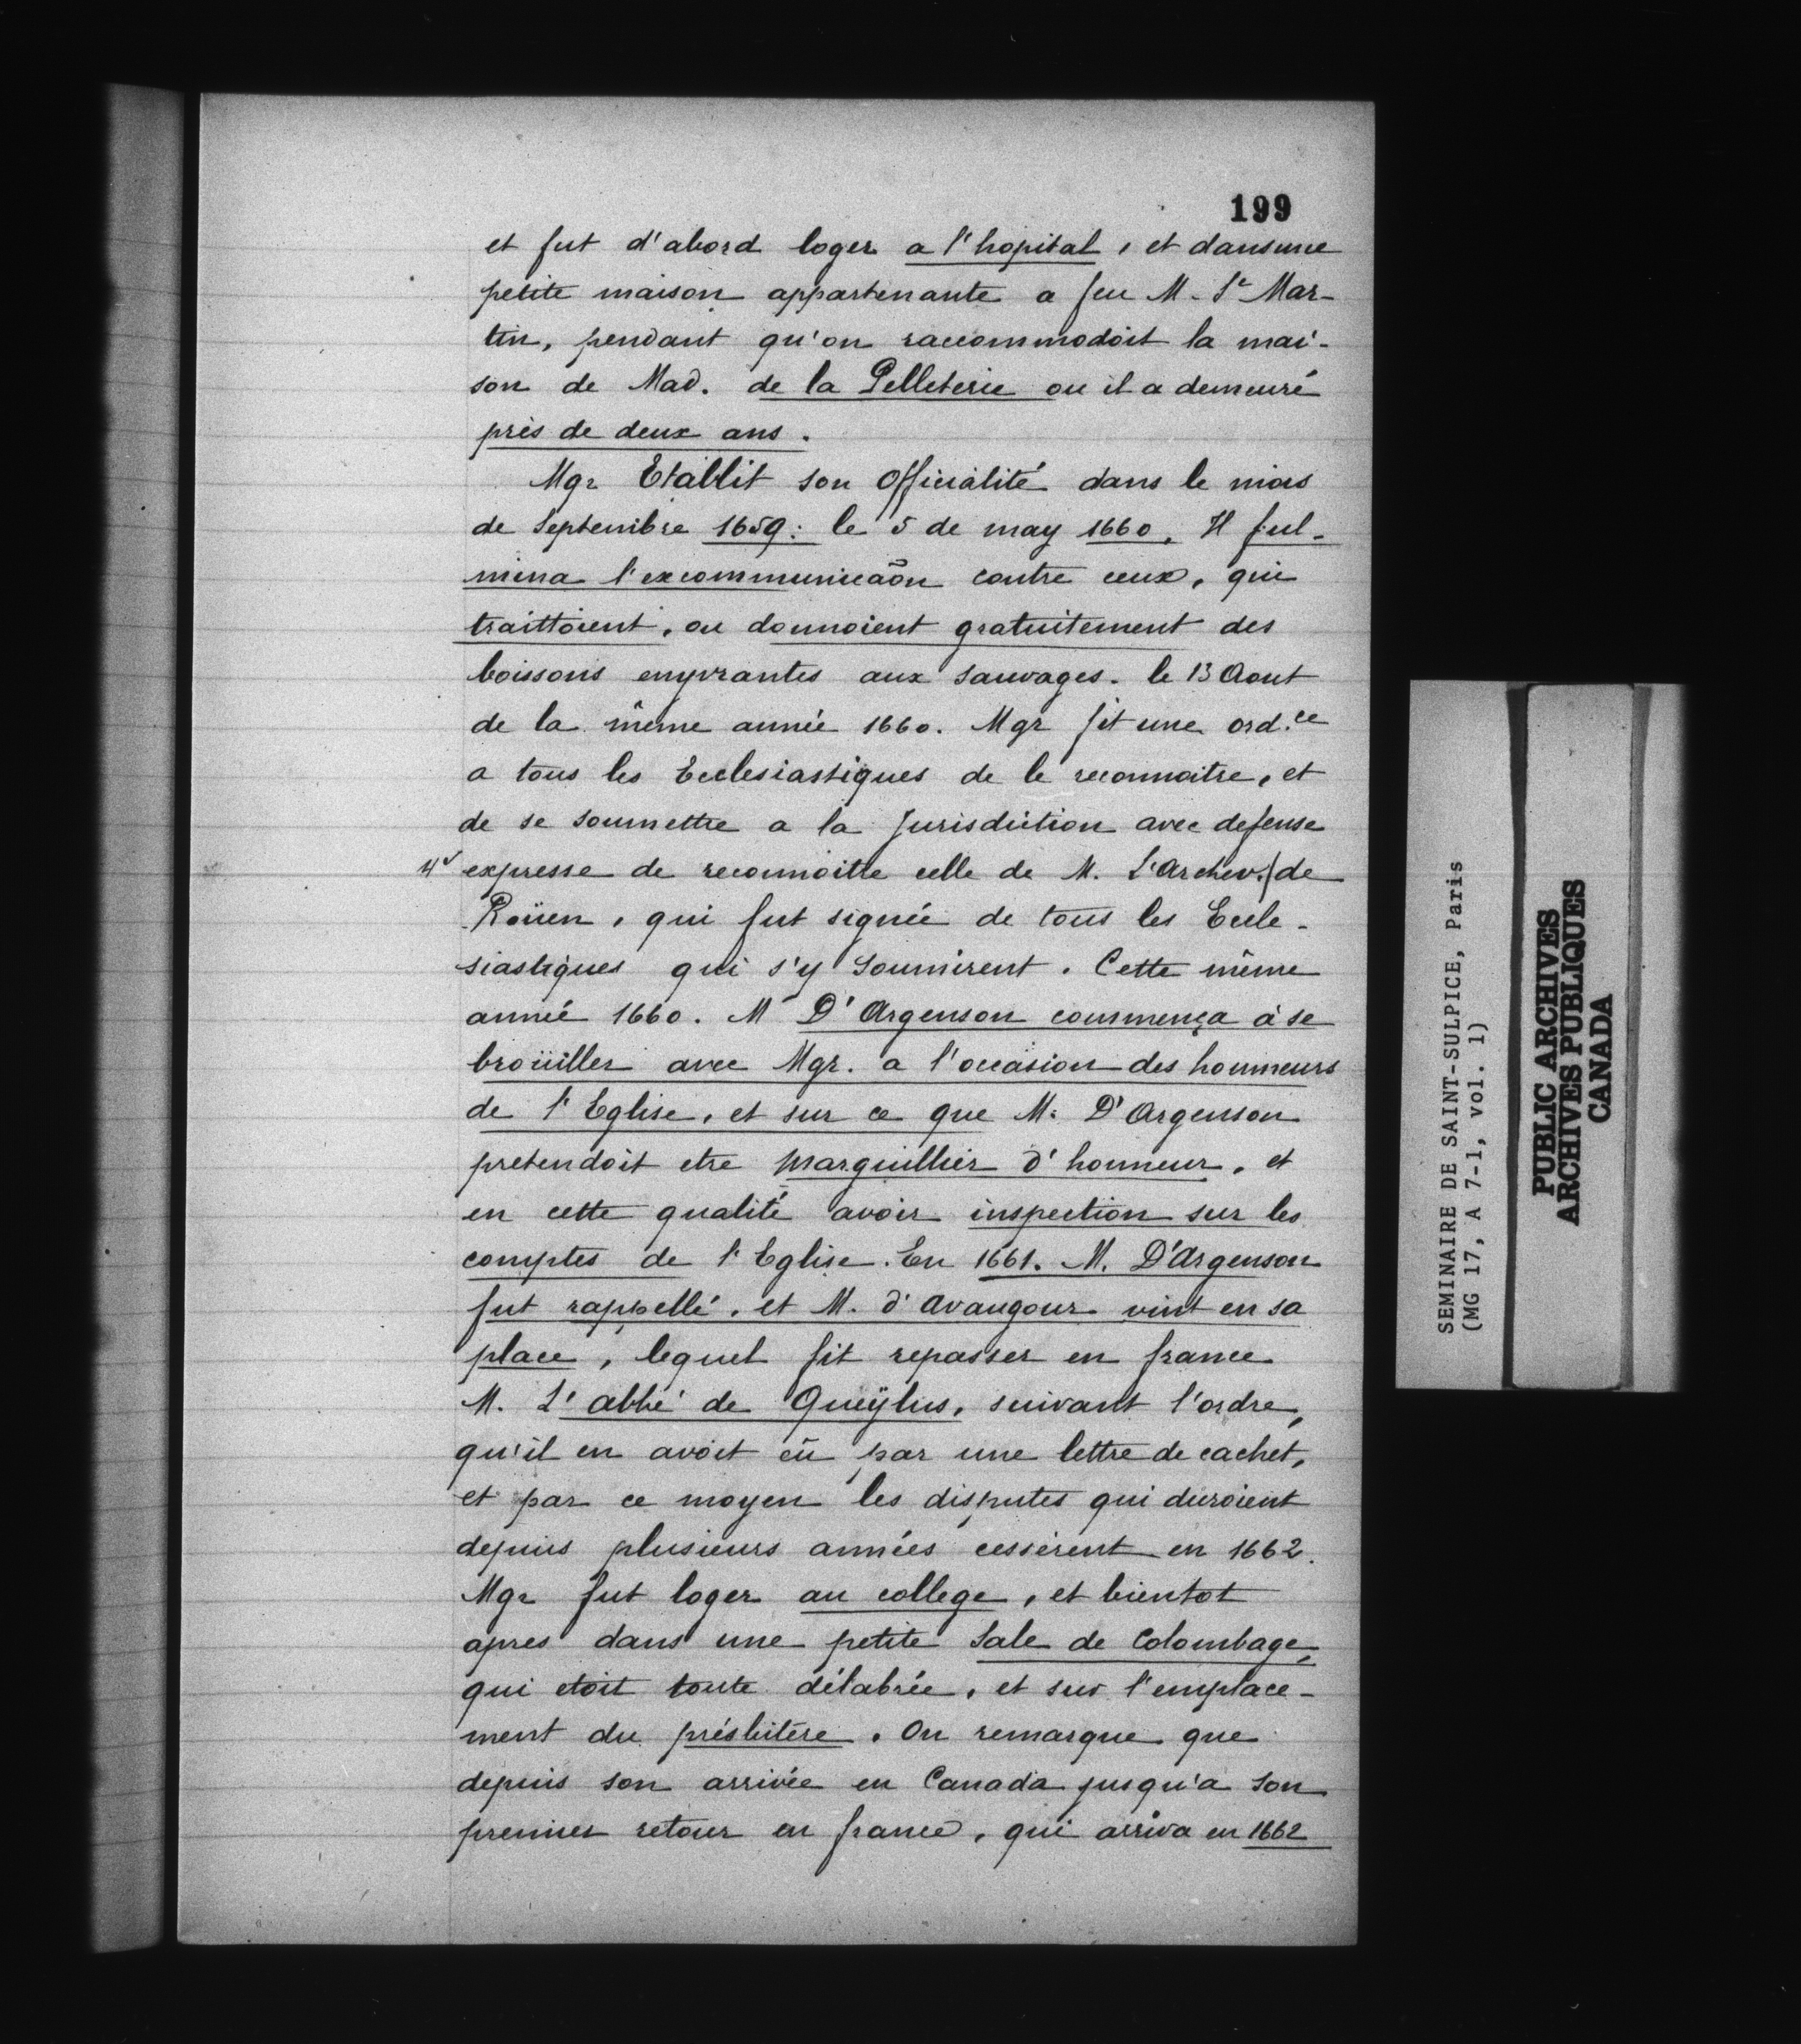 199
et fut d'abord loger a l'hopital, et dans une
petite maison appartenante a feu M. St Mar-
tin, pendant qu'on raccommodoit la mai-
son de Mad. de la Pelleterie ou il a demeuré
près de deux ans.
Mgr Etablit son Officialité dans le mois
de Septembre 1659: le 5 de may 1660. Il ful-
mina l'excommunicaõn contre ceux, qui
traittoient, ou donnoient gratuitement des
boissons enyvrantes aux Sauvages. le 13 Aout
de la même année 1660. Mgr fit une ord.ce
a tous les Ecclesiastiques de le reconnoitre, et
de se soumettre a la Jurisdiction avec defense
4v expresse de reconnoitre celle de M. L'Archev./de
Roüen, qui fut signée de tous les Eccle-
siastiques qui s'y soumirent. Cette même
année 1660. Mr D'Argenson commença à se
broüiller avec Mgr. a l'occasion des honneurs
de l'Eglise, et sur ce que M. D'Argenson
pretendoit etre Marguillier d'honneur, et
en cette qualité avoir inspection sur les
comptes de l'Eglise. En 1661. M. D'Argenson
fut rappellé, et M. d'Avaugour vint en sa
place, lequel fit repasser en france
M. L'abbé de Queÿlus, suivant l'ordre,
qu'il en avoit eû par une lettre de cachet,
et par ce moyen les disputes qui duroient
depuis plusieurs années cessèrent en 1662.
Mgr fut loger au college, et bientot
apres dans une petite Sale de Colombage,
qui etoit toute délabrée, et sur l'emplace-
ment du présbitère. On remarque que
depuis son arrivée en Canada jusqu'a son
premier retour en france, qui arriva en 1662
SEMINAIRE DE SAINT-SULPICE, Paris
(MG 17, A 7-1, vol. 1)
PUBLIC ARCHIVES
ARCHIVES PUBLIQUES
CANADA